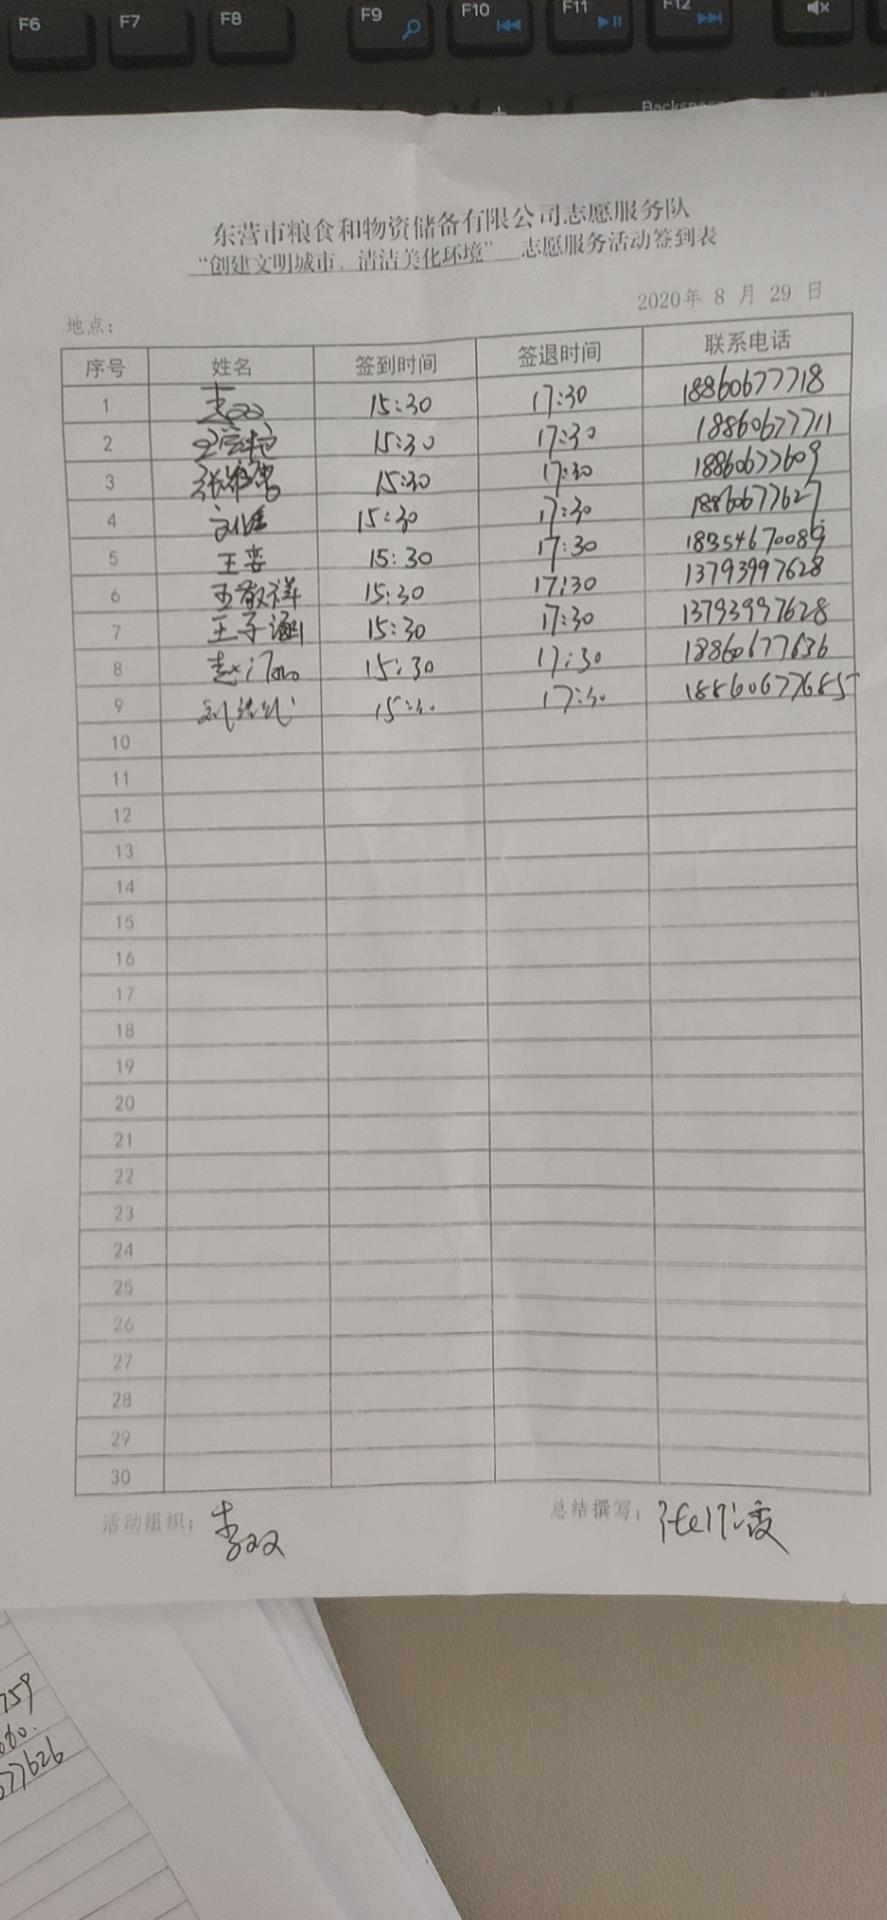 F6 F7 F8 F9 F10 F11 F12
Backspace
东营市粮食和物资储备有限公司志愿服务队
“创建文明城市、清洁美化环境” 志愿服务活动签到表
2020年 8 月 29 日
地点：
序号 姓名 签到时间 签退时间 联系电话
1 15:30 17:30 18860677718
2 15:30 17:30 18860677711
3 15:30 17:30 18860677609
4 15:30 17:30 18860677627
5 王娈 15:30 17:30 18354670089
6 王敬祥 15:30 17:30 13793997628
7 王子涵 15:30 17:30 13793997628
8 15:30 17:30 18860677636
9 15:30 17:30 18860677685
10
11
12
13
14
15
16
17
18
19
20
21
22
23
24
25
26
27
28
29
30
活动组织： 李双 总结撰写：
759
660.
677626